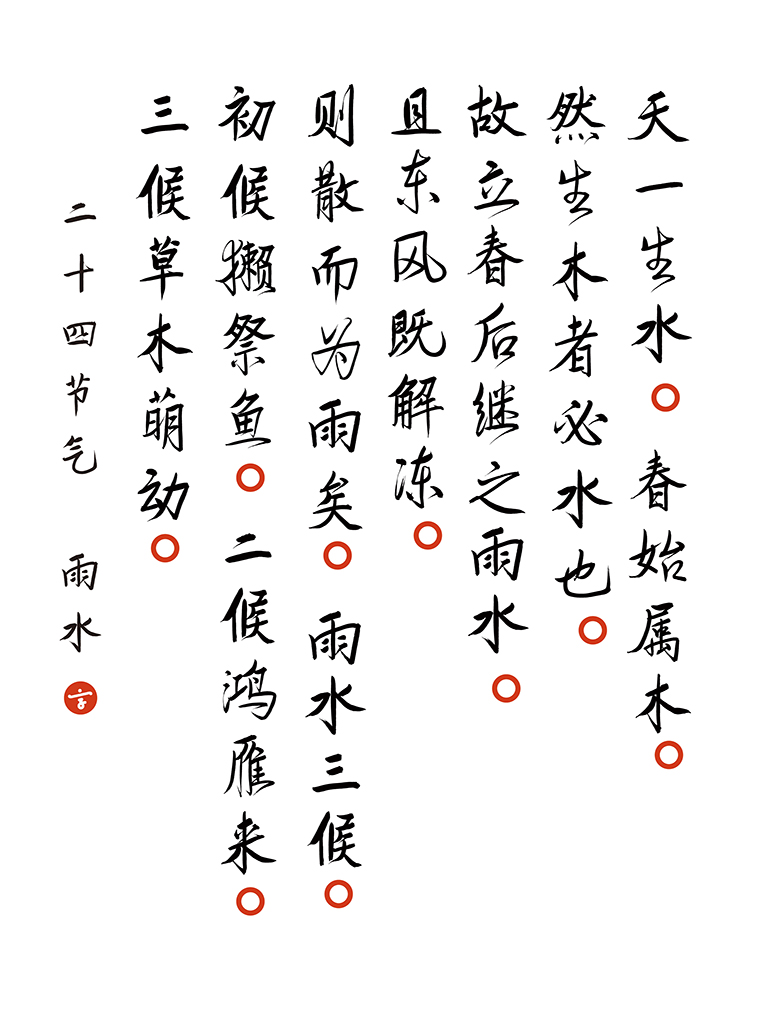 天一生水。春始属木。
然生木者必水也。
故立春后继之雨水。
且东风既解冻。
则散而为雨矣。雨水三候。
初候獭祭鱼。二候鸿雁来。
三候草木萌动。
二十四节气 雨水